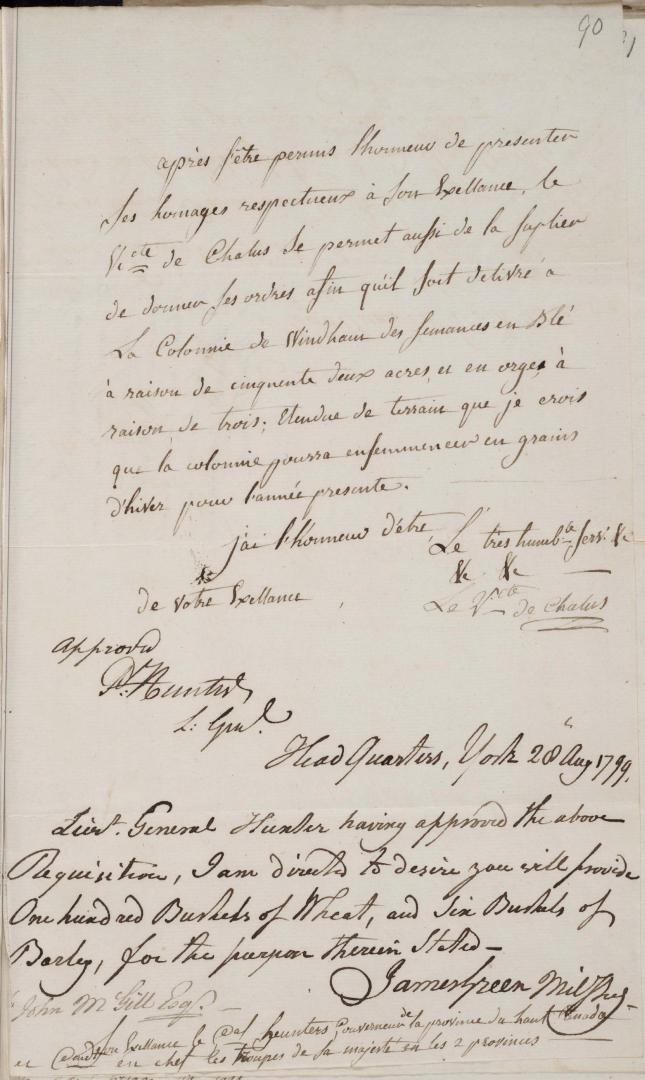 90
après s'être permis l'honneur de presenter
ses homages respectueux à son Exellance, le
Victe de Chalus se permet aussi de la suplier
de donner ses ordres afin qu'il soit delivré a
La Colonnie de Windham des semances en Blé
à raison de cinquente deux acres, et en orges, à
raison de trois; Etendue de terrain que je crois
que la colonnie pourra ensemmencer en grains
d'hiver pour l'année presente.
j'ai l'honneur d'être,
de Votre Exellance,
Le très humble serv. &c
&c &c
Le Vcte de Chalus
Approved
P. Hunter
L: Genl.
Head Quarters, York 28h Aug 1799,
Lieut. General Hunter having approved the above
Requisition, I am directed to desire you will provide
One hundred Bushels of Wheat, and Six Bushels of
Barley, for the purpose therein Stated—
James Green Mil Secy
John McGill Esqr.
son Exellance le heunters, Gouverneur de la province du haut Canada
en chef les troupes de sa majesté en les 2 provinces